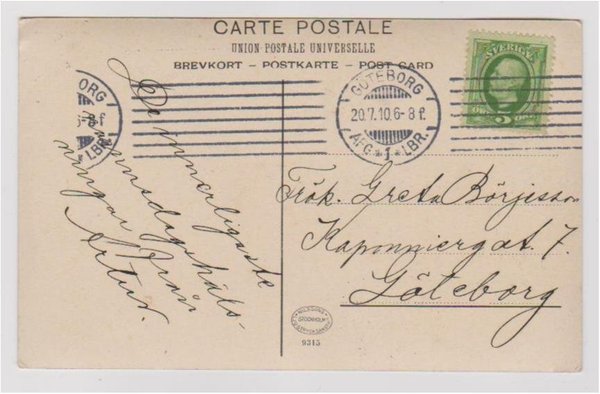 CARTE POSTALE
UNION POSTALE UNIVERSELLE
BREVKORT – POSTKARTE – POST CARD
ORG
6-8 f
LBR.
GÖTEBORG
20.7.10.6-8 f.
AFG. 1 LBR.
SVERIGE
5
De innerligaste
namnsdagshäls-
ningar från
Artur.
Frök. Greta Börjesson
Kaponniergat. 7.
Göteborg
STOCKHOLM
9315